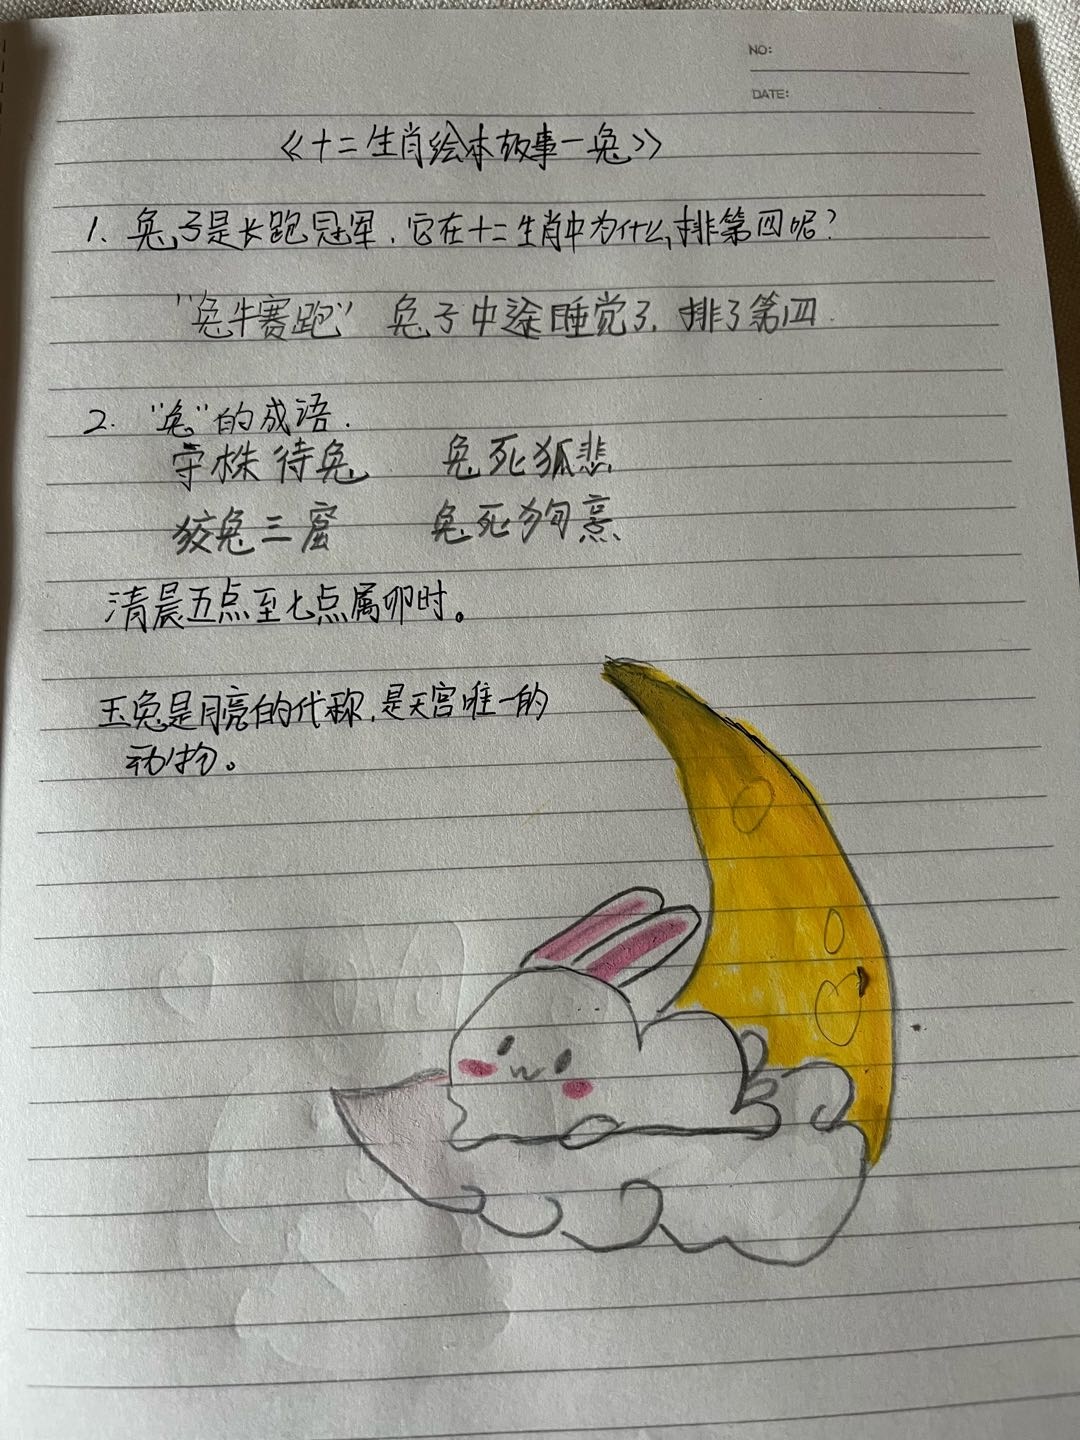 NO:
DATE:
《十二生肖绘本故事一兔》
1. 兔子是长跑冠军,它在十二生肖中为什么排第四呢?
"兔牛赛跑" 兔子中途睡觉了,排了第四.
2. "兔"的成语.
守株待兔 兔死狐悲
狡兔三窟 兔死狗烹
清晨五点至七点属卯时。
玉兔是月亮的代称,是天宫唯一的
动物。